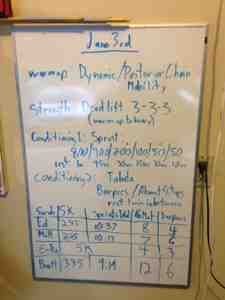 June 3rd
warmup: Dynamic/Posterior Chain
Mobility
Strength: Deadlift 3-3-3
(warm up to heavy)
Conditioning 1: Sprint
800/400/200/100/50/50
rest
Conditioning 2: Tabata
Burpees / AbMat Situps
rest 1 min between
5K Sprints Total AbMat Burpees
Ed 10:37 8 4
Matt 7 6
5K 4 3
Brett 335 9:14 12 6